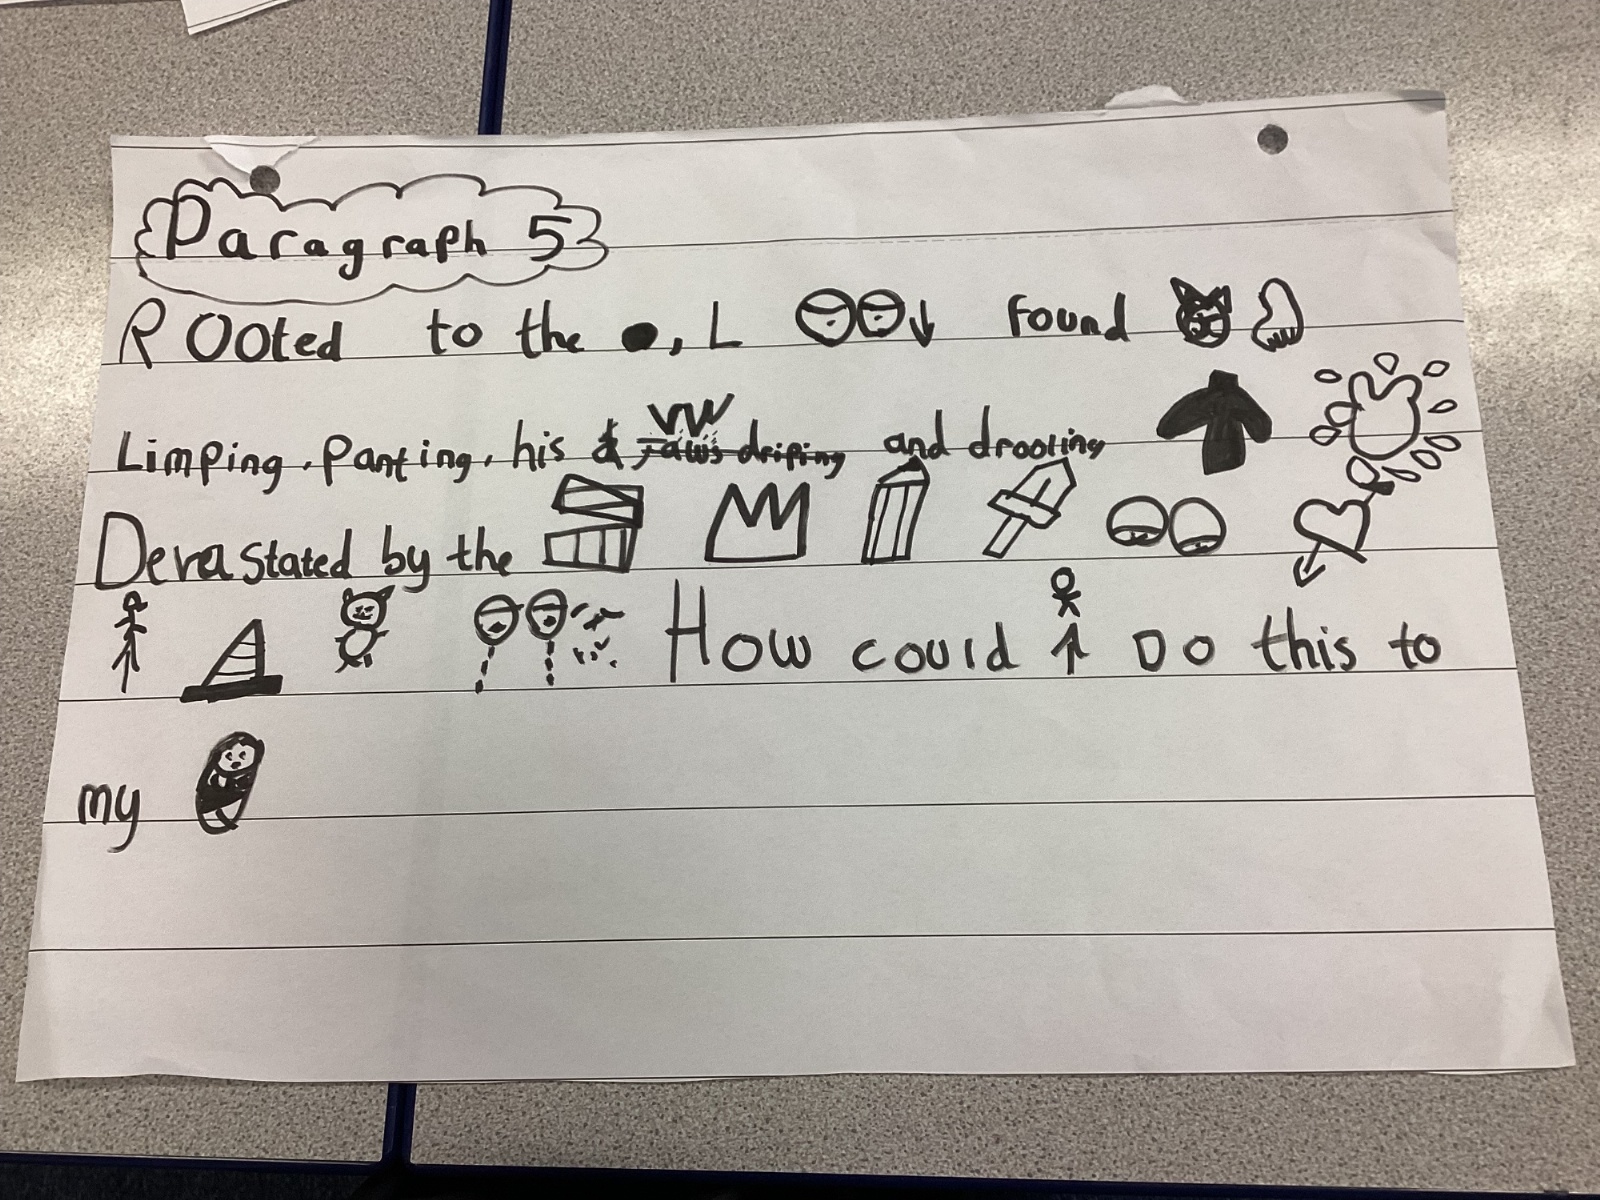 Paragraph 5
Rooted to the , L found
Limping, Panting, his Jaws driping and drooling
Devastated by the
How could Do this to
my